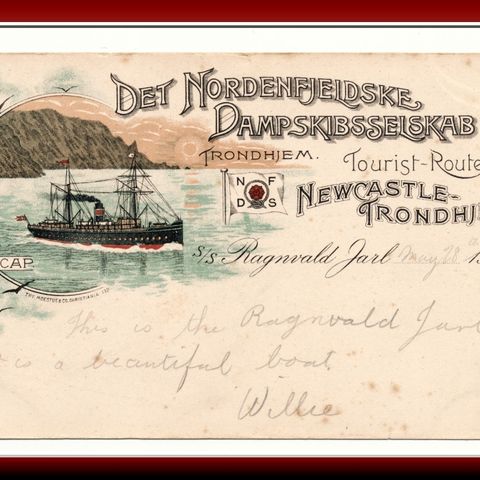 DET NORDENFJELDSKE
DAMPSKIBSSELSKAB
TRONDHJEM.
Tourist-Route
N F
D S
NEWCASTLE-
TRONDHJ
S/S Ragnvald Jarl May 28 1
CAP.
This is the Ragnvald Jarl
is a beautiful boat
Willie